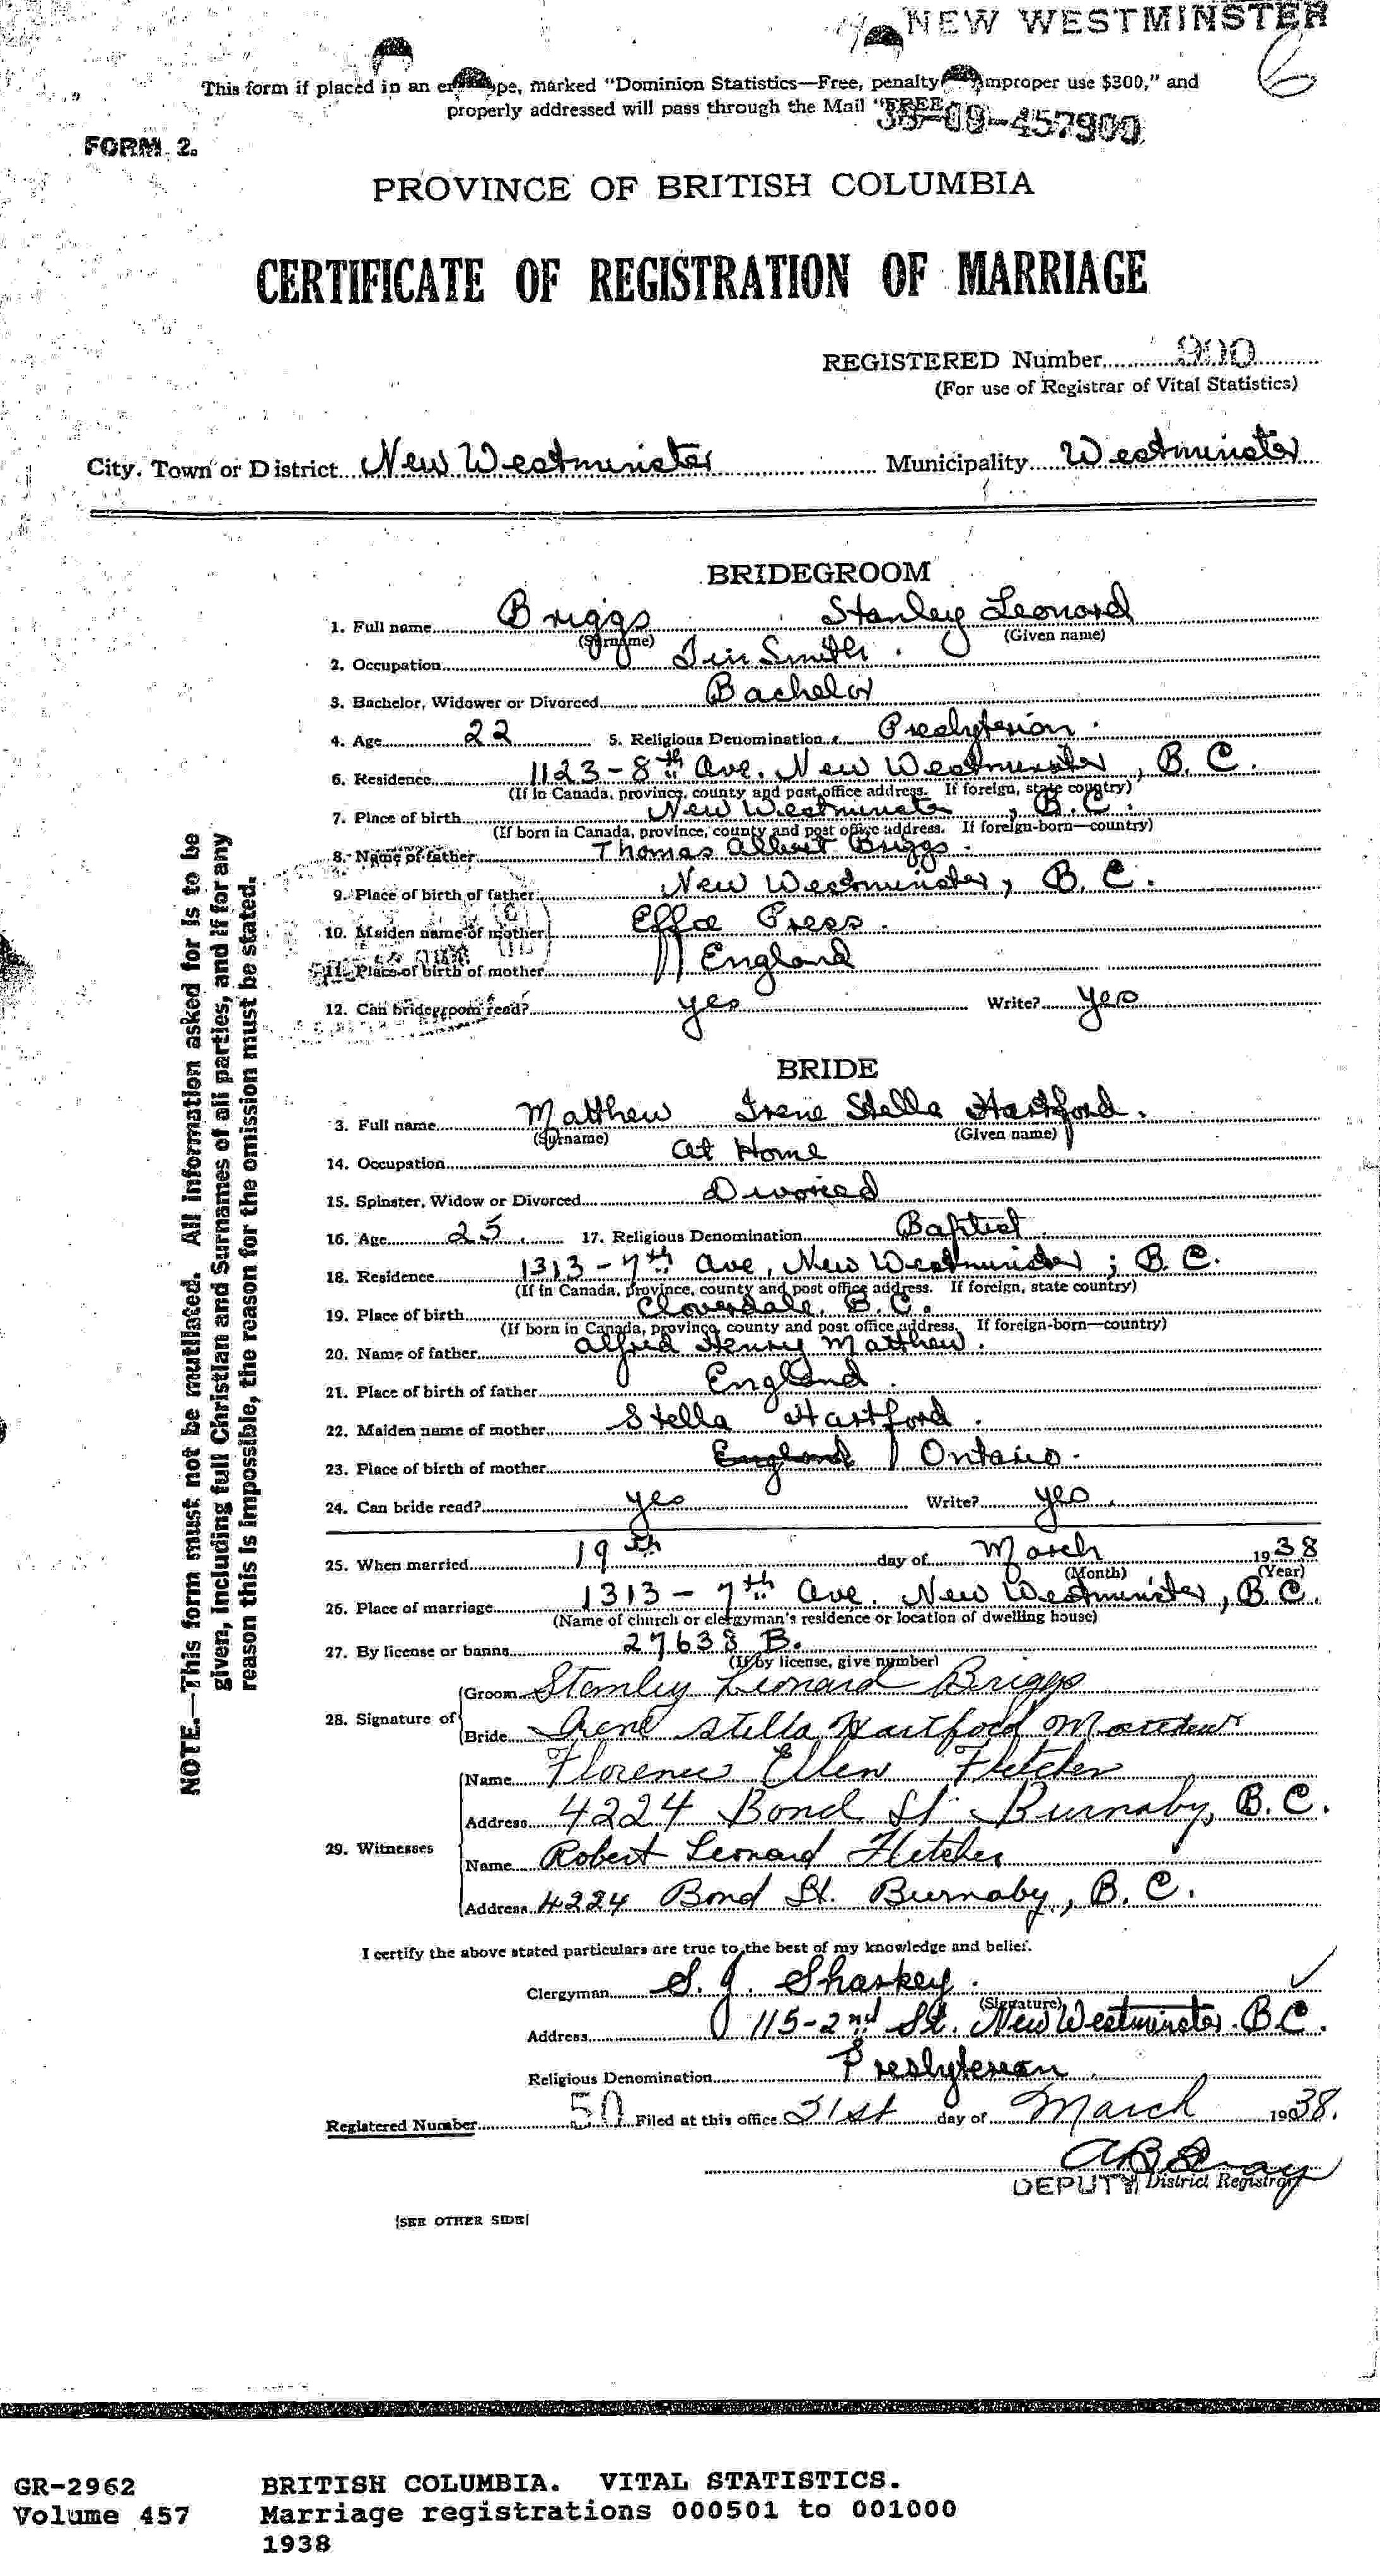 NEW WESTMINSTER
6
This form if placed in an envelope, marked "Dominion Statistics—Free, penalty improper use $300," and
properly addressed will pass through the Mail "FREE
38-09-457900
FORM 2.
PROVINCE OF BRITISH COLUMBIA
CERTIFICATE OF REGISTRATION OF MARRIAGE
REGISTERED Number 900
(For use of Registrar of Vital Statistics)
City. Town or District New Westminster Municipality Westminster
NOTE.—This form must not be mutilated. All information asked for is to be
given, including full Christian and Surnames of all parties, and if for any
reason this is impossible, the reason for the omission must be stated.
BRIDEGROOM
1. Full name Briggs Stanley Leonard
(Surname) (Given name)
2. Occupation Tin Smith.
3. Bachelor, Widower or Divorced Bachelor
4. Age 22 5. Religious Denomination Presbyterian.
6. Residence 1123 - 8th Ave. New Westminster, B. C.
(If in Canada, province, county and post office address. If foreign, state country)
7. Place of birth New Westminster, B. C.
(If born in Canada, province, county and post office address. If foreign-born—country)
8. Name of father Thomas Albert Briggs.
9. Place of birth of father New Westminster, B. C.
10. Maiden name of mother Effie
11. Place of birth of mother England
12. Can bridegroom read? yes Write? yes
BRIDE
3. Full name Matthew Irene Stella Hartford.
(Surname) (Given name)
14. Occupation At Home
15. Spinster, Widow or Divorced Divorced
16. Age 25. 17. Religious Denomination Baptist.
18. Residence 1313 - 7th Ave, New Westminster; B. C.
(If in Canada, province, county and post office address. If foreign, state country)
19. Place of birth Cloverdale, B. C.
(If born in Canada, province, county and post office address. If foreign-born—country)
20. Name of father Alfred Henry Matthew.
21. Place of birth of father England.
22. Maiden name of mother Stella Hartford.
23. Place of birth of mother England Ontario.
24. Can bride read? yes Write? yes.
25. When married 19th day of March 1938
(Month) (Year)
26. Place of marriage 1313 - 7th Ave. New Westminster, B. C.
(Name of church or clergyman's residence or location of dwelling house)
27. By license or banns 27638 B.
(If by license, give number)
28. Signature of Groom Stanley Leonard Briggs
Bride Irene Stella Hartford Matthew
29. Witnesses Name Florence Ellen Fletcher
Address 4224 Bond St. Burnaby, B. C.
Name Robert Leonard Fletcher
Address 4224 Bond St. Burnaby, B. C.
I certify the above stated particulars are true to the best of my knowledge and belief.
Clergyman S. J. Sharkey.
(Signature)
Address 115-2nd St. New Westminster. B. C.
Religious Denomination Presbyterian.
Registered Number 50 Filed at this office 31st day of March 1938.
DEPUTY District Registrar
[SEE OTHER SIDE]
GR-2962 BRITISH COLUMBIA. VITAL STATISTICS.
Volume 457 Marriage registrations 000501 to 001000
1938